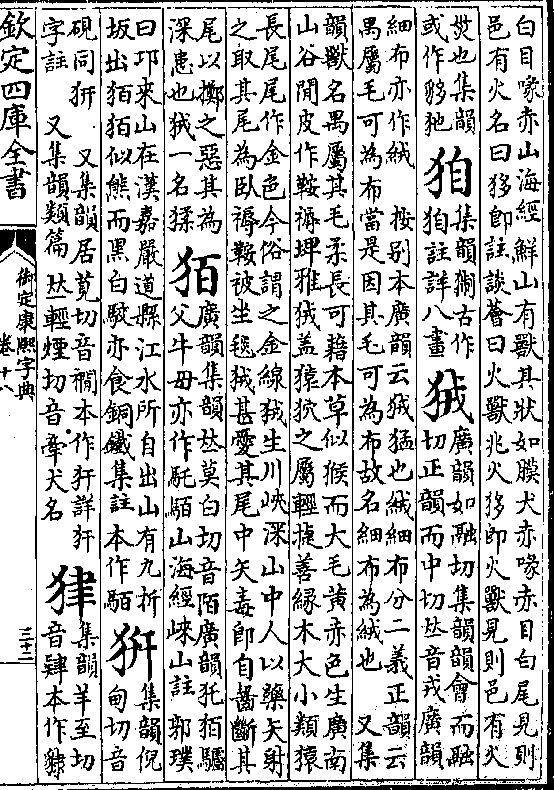 白目喙赤山海經鮮山有獸其狀如膜犬赤喙赤目白尾見則
邑有火名曰即註談薈曰火獸兆火即火獸見則邑有火
烖也集韻
或作狏
集韻古作
註詳八畫
狨
廣韻如融切集韻韻會而融
切正韻而中切𠀤音戎廣韻
細布亦作絨 按别本廣韻云狨猛也絨細布分二義正韻云
禺屬毛可為布當是因其毛可為布故名細布為絨也 又集
韻獸名禺屬其毛柔長可藉本草似猴而大毛黄赤色生廣南
山谷間皮作鞍褥埤雅狨蓋猿狖之屬輕捷善緣木大小類猿
長尾尾作金色今俗謂之金線狨生川峽深山中人以藥矢射
之取其尾為臥褥鞍被坐毯狨甚愛其尾中矢毒即自齧斷其
尾以擲之惡其為
深患也狨一名猱
㹮
廣韻集韻𠀤莫白切音陌廣韻㹮驢
父牛母亦作馲䮀山海經崍山註郭璞
曰卭來山在漢嘉嚴道縣江水所自出山有九折
坂出㹮㹮似熊而黑白駮亦食銅鐵集註本作䮀
集韻倪
甸切音
硯同豜 又集韻居莧切音襇本作豜詳豜
字註 又集韻類篇𠀤輕煙切音牽犬名
集韻羊至切
音肄本作
欽定四庫全書
御定康熙字典
卷十八
三十二